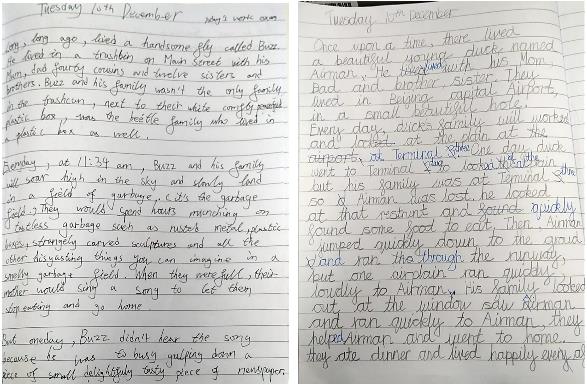 Tuesday 10th December
Long, long ago, lived a handsome fly called Buzz.
He lived in a trashbin on Main Street with his
Mom, dad, fourty cousins and twelve sisters and
brothers. Buzz and his family wasn't the only family
in the trashcan, next to their white comfy
plastic box, was the beetle family who lived in
a plastic box as well.
Everyday, at 11:34 am, Buzz and his family
will soar high in the sky and slowly land
in a field of garbage, it's the garbage
field, They would spend hours munching on
tastless garbage such as rusted metal, plastic
boxes, strangely carved sculptures and all the
other disgasting things you can imagine in a
smelly garbage field. When they were full, their
mother would sing a song to let them
stop eating and go home.
But oneday, Buzz didn't hear the song
because he was to busy gulping down a
piece of small delightfully tasty piece of newspaper.
Tuesday 10th December
Once upon a time, there lived
a beautiful young duck named
Airman. He lived with his Mom
Dad and brother, sister. They
lived in Beijing Capital Airport,
in a small beautiful hole.
Every day, ducks family will worked
and looked at the plan at the
airport, at Terminal three. One day duck
went to Terminal two to looked at the plain
but his family was at Teminal three
so Airman was lost, he looked
at that restrunt and found quickly
found some food to eat, Then Airman
jumped quickly down to the groud
and ran through the runway,
but one airplain ran quickly
loudly to Airman. His family looked
out at the window saw Airman
and ran quickly to Airman, they
helped Airman and went to home.
they ate dinner and lived happily every